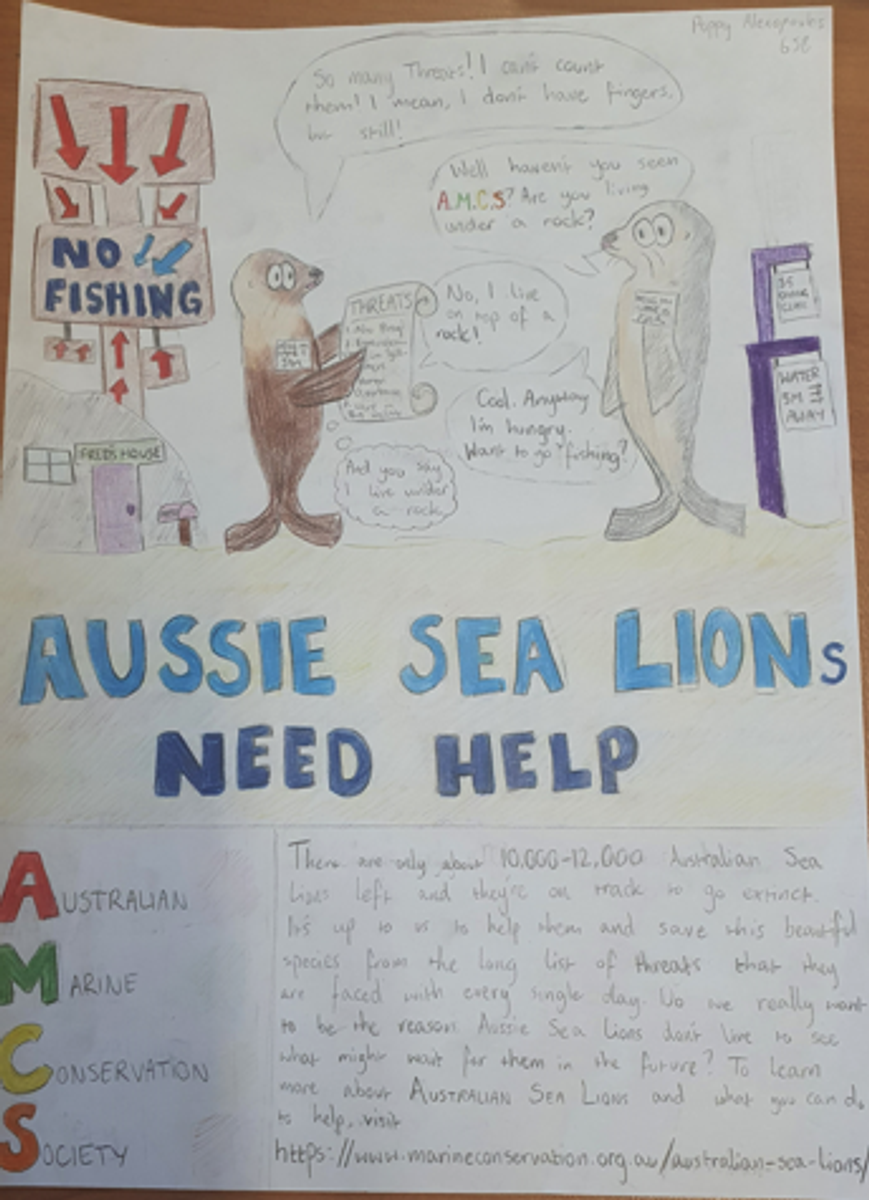 Poppy Alexopoulos
So many Threats! I can't count
them! I mean, I don't have fingers,
but still!
Well haven't you seen
A.M.C.S? Are you living
under a rock?
No, I live
on top of a
rock!
Cool. Anyway
I'm hungry.
Want to go "fishing"?
And you say
I live under
a rock
NO
FISHING
THREATS
FRED'S HOUSE
WATER
5M
AWAY
AUSSIE SEA LIONS
NEED HELP
AUSTRALIAN
MARINE
CONSERVATION
SOCIETY
There are only about 10,000-12,000 Australian Sea
Lions left and they're on track to go extinct.
It's up to us to help them and save this beautiful
species from the long list of threats that they
are faced with every single day. Do we really want
to be the reason Aussie Sea Lions don't live to see
what might wait for them in the future? To learn
more about AUSTRALIAN SEA LIONS and what you can do
to help, visit
https://www.marineconservation.org.au/australian-sea-lions/